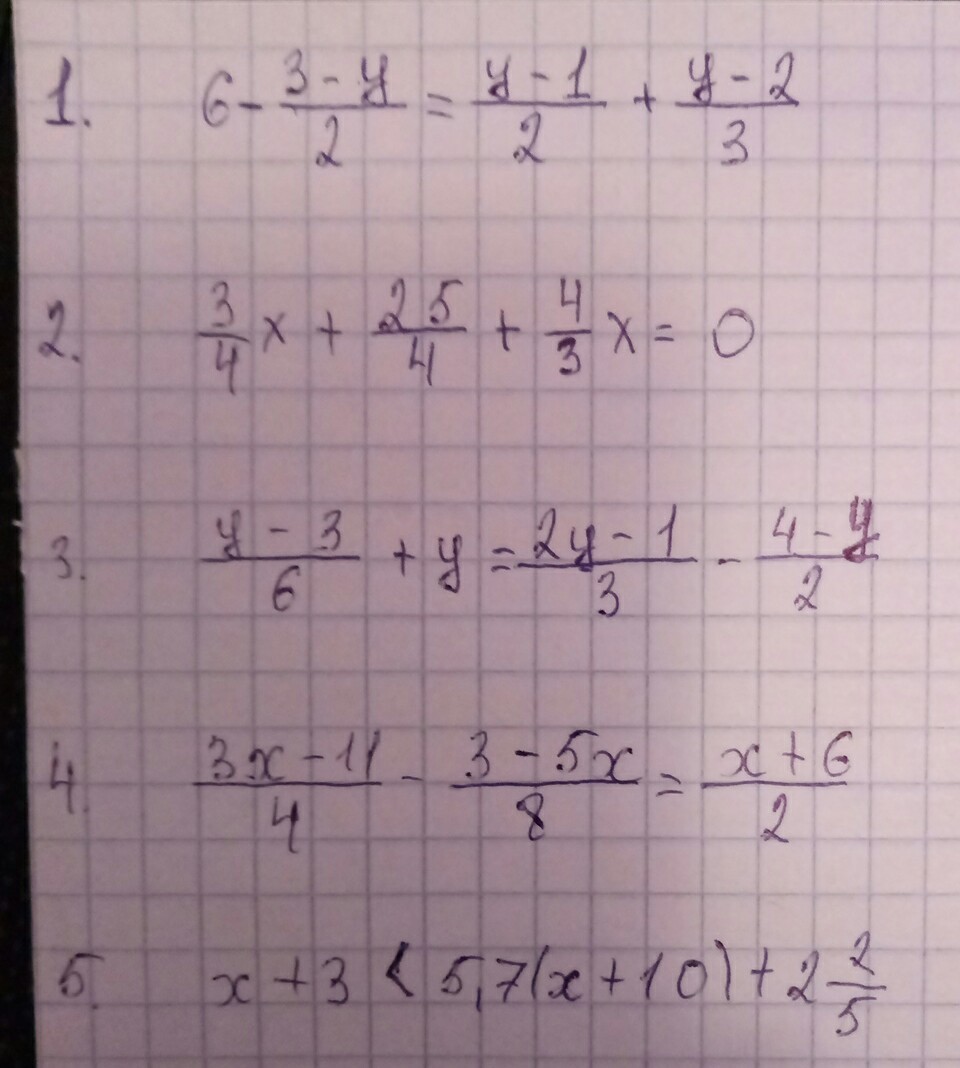 1. 6 - \frac{3 - y}{2} = \frac{y - 1}{2} + \frac{y - 2}{3}
2. \frac{3}{4}x + \frac{25}{4} + \frac{4}{3}x = 0
3. \frac{y - 3}{6} + y = \frac{2y - 1}{3} - \frac{4 - y}{2}
4. \frac{3x - 11}{4} - \frac{3 - 5x}{8} = \frac{x + 6}{2}
5. x + 3 < 5,7(x + 10) + 2\frac{2}{5}